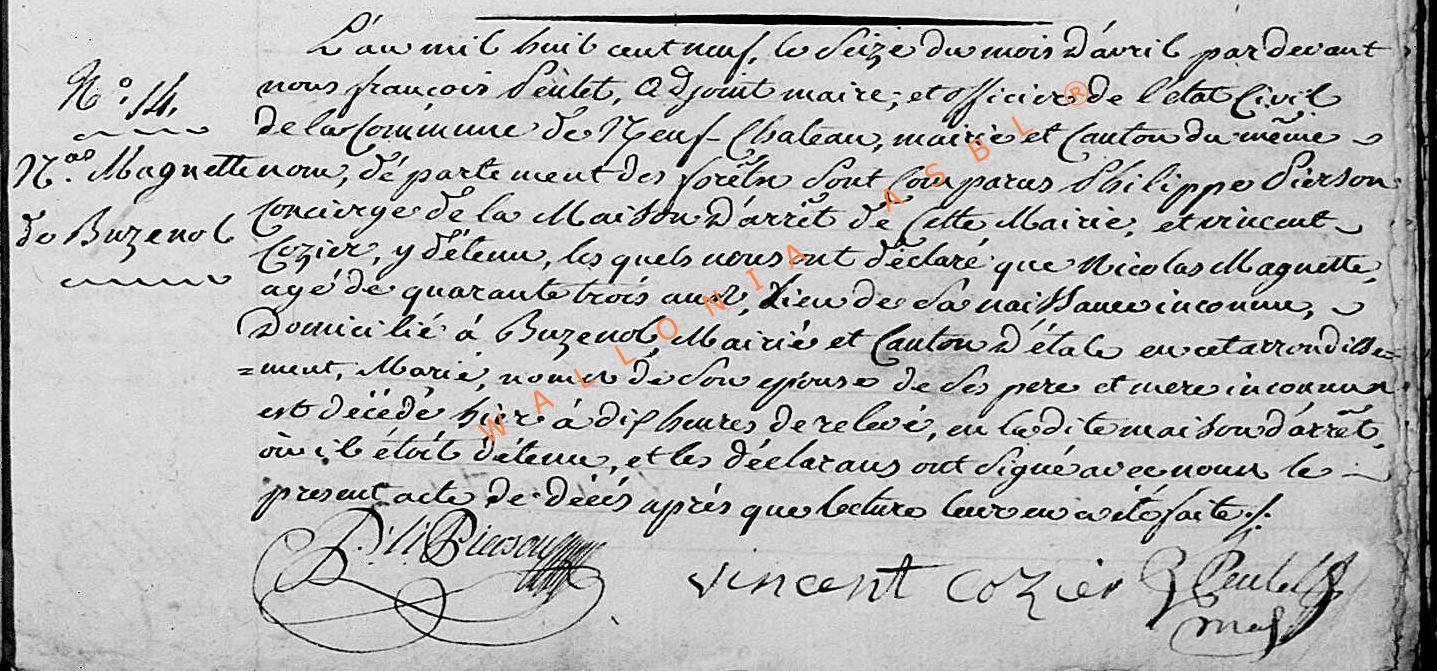 L'an mil huit cent neuf, le Seize du mois d'avril par devant
nous françois Peulet, adjoint maire, et officier de l'etat Civil
N.° 14.
de la Commune de Neuf-Chateau, mairie et Canton du même
N.as Maguette
nom, département des forêts sont Comparus Philippe Pierson
Concierge de la Maison d'arrêt de Cette Mairie, et vincent
de Buzenol
Cozier, y détenu, les quels nous ont déclaré que Nicolas Maguette,
agé de quarante trois ans, Lieu de sa naissance inconnu,
Domicilié à Buzenol Mairie et Canton d'étale en cet arrondisse=
=ment, Marié, nom de son epouse de ses pere et mere inconnus
est décédé hier à dix heures de relevé, en la dite maison d'arrêt,
où il étoit détenu, et les déclarans ont Signé avec nous le
present acte de décès après que lecture leur en a été faite ./.
Pierson
vincent cozier
Peulet
WALLONIA ASBL ®